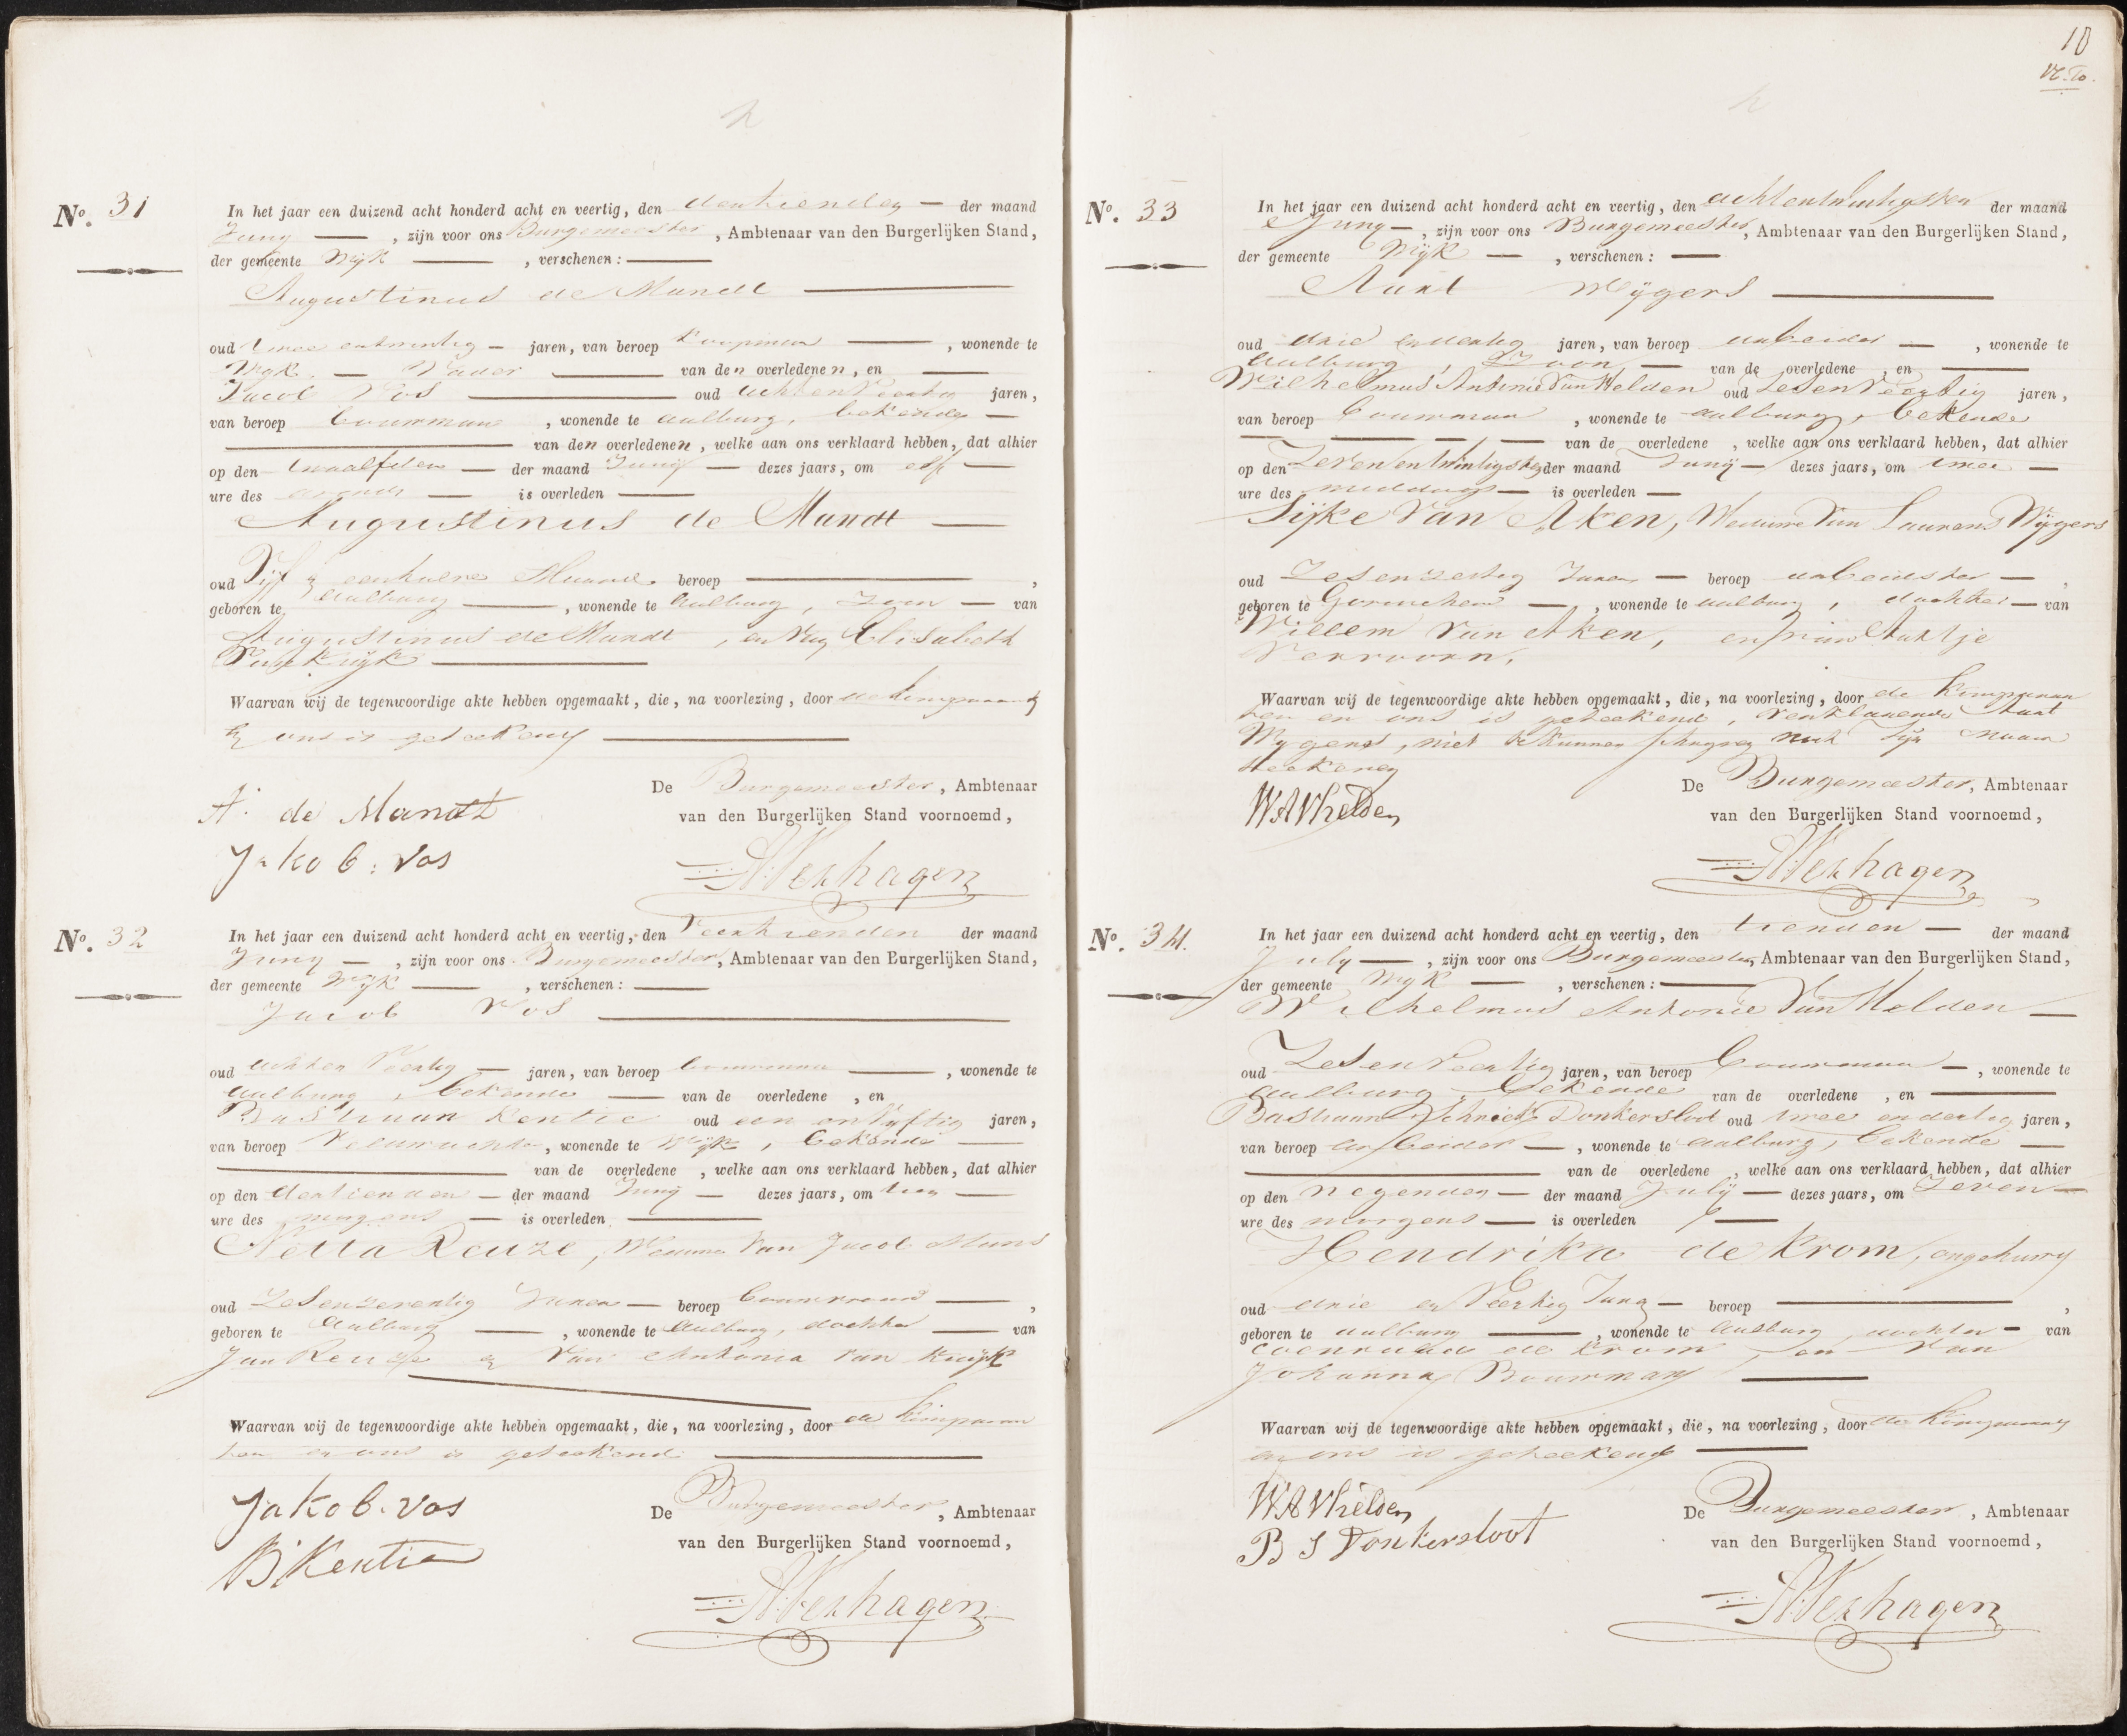 No. 31
In het jaar een duizend acht honderd acht en veertig, den dertienden der maand
Junij, zijn voor ons Burgemeester, Ambtenaar van den Burgerlijken Stand,
der gemeente Wijk, verschenen:
Augustinus de Mandt
oud twee entwintig jaren, van beroep koopman, wonende te
Wijk Vader van den overledenen, en
Jacob Vos oud achtenveertig jaren,
van beroep bouwman, wonende te Aalburg, bekende
van den overledenen, welke aan ons verklaard hebben, dat alhier
op den twaalfden der maand Junij dezes jaars, om elf
ure des avonds is overleden
Augustinus de Mandt
oud Vijf & eenhalve Maand beroep ,
geboren te Aalburg, wonende te Aalburg, Zoon van
Augustinus de Mandt, en van Elisabeth
Waarvan wij de tegenwoordige akte hebben opgemaakt, die, na voorlezing, door de
& ons is geteekend
De Burgemeester, Ambtenaar
van den Burgerlijken Stand voornoemd,
A. de Mandt
Jakob: Vos
A. Verhagen
No. 32
In het jaar een duizend acht honderd acht en veertig, den Veertienden der maand
Junij, zijn voor ons Burgemeester, Ambtenaar van den Burgerlijken Stand,
der gemeente Wijk, verschenen:
Jacob Vos
oud achten Veertig jaren, van beroep bouwman, wonende te
Aalburg, bekende van de overledene, en
Bastiaan Kentie oud een en Vijftig jaren,
van beroep Veldwachter, wonende te Wijk, bekende
van de overledene, welke aan ons verklaard hebben, dat alhier
op den dertienden der maand Junij dezes jaars, om tien
ure des morgens is overleden
Netta Reuze, Weduwe van Jacob Mans
oud Zesenzeventig Jaren beroep bouwvrouw ,
geboren te Aalburg, wonende te Aalburg, dochter van
Jan Reuze & Van Antonia van Kuijk
Waarvan wij de tegenwoordige akte hebben opgemaakt, die, na voorlezing, door de Comparan
ten en ons is geteekend
De Burgemeester, Ambtenaar
van den Burgerlijken Stand voornoemd,
Jakob. Vos
B Kentie
A. Verhagen
10
No. 33
In het jaar een duizend acht honderd acht en veertig, den achtentwintigsten der maand
Junij, zijn voor ons Burgemeester, Ambtenaar van den Burgerlijken Stand,
der gemeente Wijk, verschenen:
Aart Wijgers
oud drie endertig jaren, van beroep arbeider, wonende te
Aalburg, Zoon van de overledene, en
Wilhelmus Antonie Van Helden oud Zesenveertig jaren,
van beroep bouwman, wonende te Aalburg, bekende
van de overledene, welke aan ons verklaard hebben, dat alhier
op den Zevenentwintigsten der maand Junij dezes jaars, om twee
ure des middags is overleden
Sijke Van Aken, Weduwe van Laurens Wijgers
oud Zesenzestig Jaren beroep arbeidster ,
geboren te Gorinchem, wonende te Aalburg, dochter van
Willem Van Aken, en van Aartje
Vervoorn,
Waarvan wij de tegenwoordige akte hebben opgemaakt, die, na voorlezing, door de Comparan
ten en ons is geteekend, verklarende Aart
Wijgers, niet te kunnen schrijven noch zijn naam
teekenen
De Burgemeester, Ambtenaar
van den Burgerlijken Stand voornoemd,
WAVhelden
A. Verhagen
No. 34.
In het jaar een duizend acht honderd acht en veertig, den tienden der maand
July, zijn voor ons Burgemeester, Ambtenaar van den Burgerlijken Stand,
der gemeente Wijk, verschenen:
Wilhelmus Antonie Van Helden
oud Zesenveertig jaren, van beroep bouwman, wonende te
Aalburg, bekende van de overledene, en
Bastiaan Donkersloot oud twee endertig jaren,
van beroep arbeider, wonende te Aalburg, bekende
van de overledene, welke aan ons verklaard hebben, dat alhier
op den negenden der maand July dezes jaars, om Zeven
ure des morgens is overleden
Hendrika de Krom, ongehuwd
oud drie en Veertig Jaren beroep ,
geboren te Aalburg, wonende te Aalburg, dochter van
Coenraad de Krom, en Van
Johanna Bouwman
Waarvan wij de tegenwoordige akte hebben opgemaakt, die, na voorlezing, door de
en ons is geteekend
De Burgemeester, Ambtenaar
van den Burgerlijken Stand voornoemd,
WAVhelden
B S Donkersloot
A. Verhagen